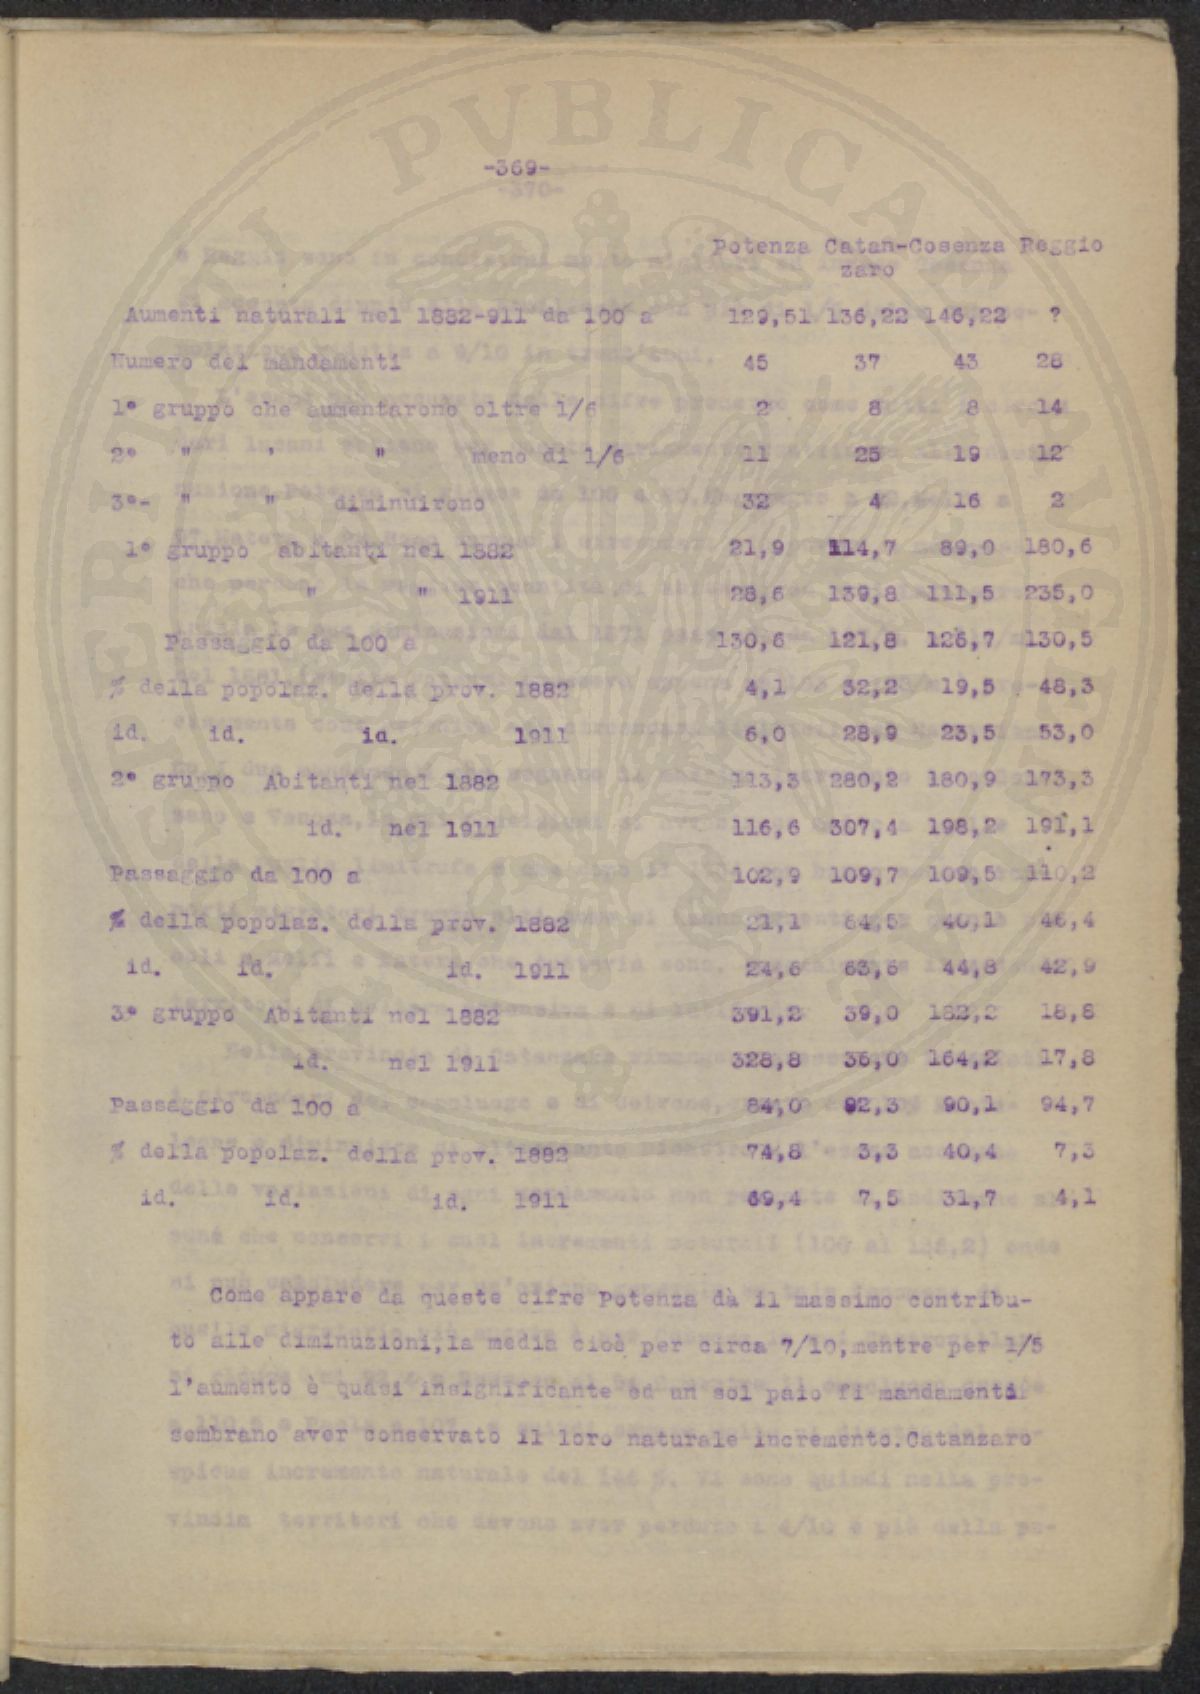 -369-
Potenza Catan-Cosenza Reggio
zaro
Aumenti naturali nel 1882-911 da 100 a 129,51 136,22 146,22 ?
Numero dei mandamenti 45 37 43 28
1° gruppo che aumentarono oltre 1/6 2 8 8 14
2° " ' " meno di 1/6 11 25 19 12
3°- " " diminuirono 32 4 16 2
1° gruppo abitanti nel 1882 21,9 114,7 89,0 180,6
" " 1911 28,6 139,8 111,5 235,0
Passaggio da 100 a 130,6 121,8 126,7 130,5
% della popolaz. della prov. 1882 4,1 32,2 19,5 48,3
id. id. id. 1911 6,0 28,9 23,5 53,0
2° gruppo Abitanti nel 1882 113,3 280,2 180,9 173,3
id. nel 1911 116,6 307,4 198,2 191,1
Passaggio da 100 a 102,9 109,7 109,5 110,2
% della popolaz. della prov. 1882 21,1 64,5 40,1 46,4
id. id. id. 1911 24,6 63,6 44,8 42,9
3° gruppo Abitanti nel 1882 391,2 39,0 182,2 18,8
id. nel 1911 328,8 36,0 164,2 17,8
Passaggio da 100 a 84,0 92,3 90,1 94,7
% della popolaz. della prov. 1882 74,8 3,3 40,4 7,3
id. id. id. 1911 69,4 7,5 31,7 4,1
Come appare da queste cifre Potenza dà il massimo contribu-
to alle diminuzioni,la media cioè per circa 7/10,mentre per 1/5
l'aumento è quasi insignificante ed un sol paio fi mandamenti
sembrano aver conservato il loro naturale incremento.Catanzaro